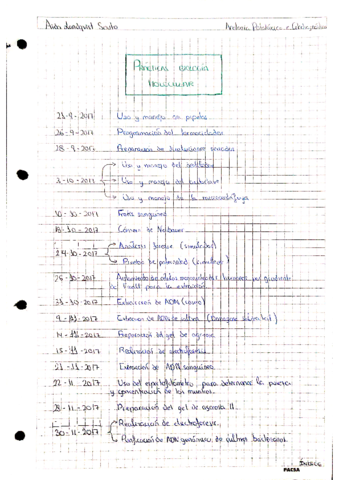 Anatomía Patológica e Citodiagnóstico
PRÁCTICAS BIOLOGÍA
MOLECULAR
Uso y manejo de pipetas
26-9-2017 Programación del termociclador
28-9-2017 Preparación de disoluciones
Uso y manejo del
3-10-2017 Uso y manejo del autoclave
Uso y manejo de la microcentrífuga
10-10-2017 Frotis sanguíneo
18-10-2017 Cámara de Neubauer
24-10-2017 Análisis forense (simulación)
Prueba de paternidad (simulación)
26-10-2017
de Ficoll para la extracción
31-10-2017 Extracción de ADN
9-11-2017 Extracción de ADN de saliva
14-11-2017 Preparación del gel de agarosa
15-11-2017 Realización de electroforesis
21-11-2017 Extracción de ADN sanguíneo
22-11-2017 Uso del espectofotómetro para determinar la pureza
y concentración de las muestras.
28-11-2017 Preparación del gel de agarosa II
30-11-2017 Realización de electroforesis.
Purificación de ADN genómico de cultivo bacteriano.
PACSA